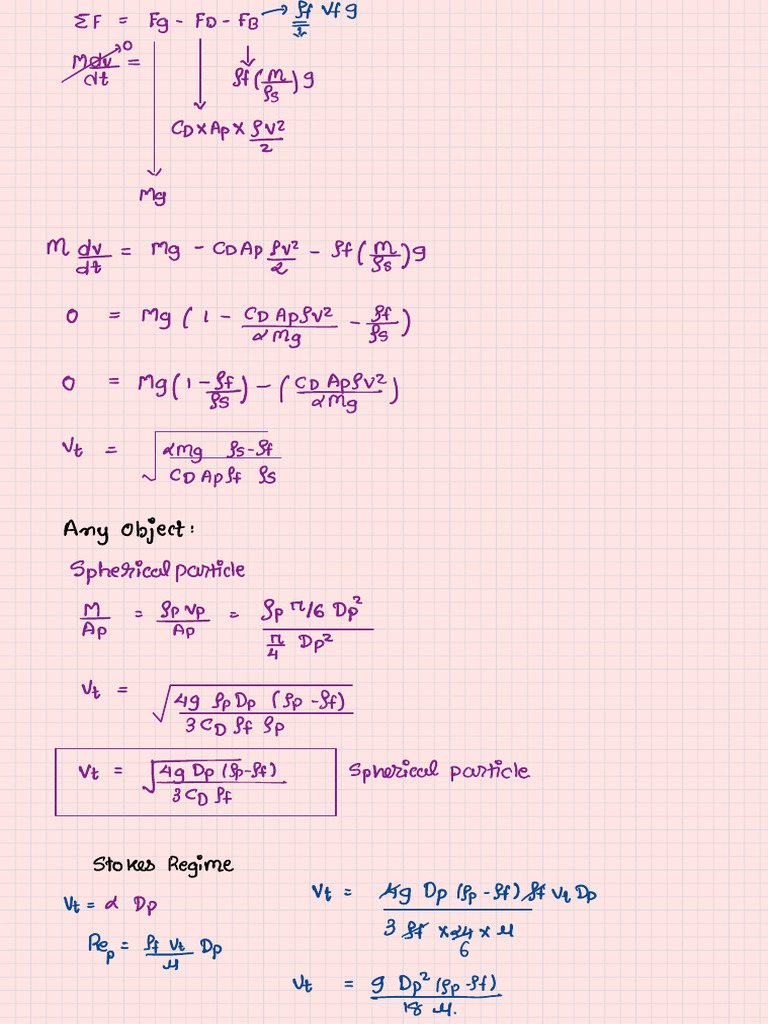 ΣF = Fg - FD - FB → ρf Vf g
M dv/dt = 0
ρf (M/ρs) g
CD × Ap × ρv²/2
Mg
M dv/dt = Mg - CD Ap ρv²/2 - ρf (M/ρs) g
0 = Mg ( 1 - CD Ap ρv²/2Mg - ρf/ρs )
0 = Mg ( 1 - ρf/ρs ) - ( CD Ap ρv²/2Mg )
Vt = √(2Mg ρs-ρf / CD Ap ρf ρs)
Any Object:
Spherical particle
M/Ap = ρp Vp/Ap = ρp π/6 Dp² / π/4 Dp²
Vt = √(4g ρp Dp (ρp - ρf) / 3 CD ρf ρp)
Vt = √(4g Dp (ρp - ρf) / 3 CD ρf) Spherical particle
Stokes Regime
Vt = α Dp
Rep = ρf Vt/μ Dp
Vt = 4g Dp (ρp - ρf) ρf Vt Dp / 3 ρf × 24 × μ
6
Vt = g Dp² (ρp - ρf) / 18 μ.